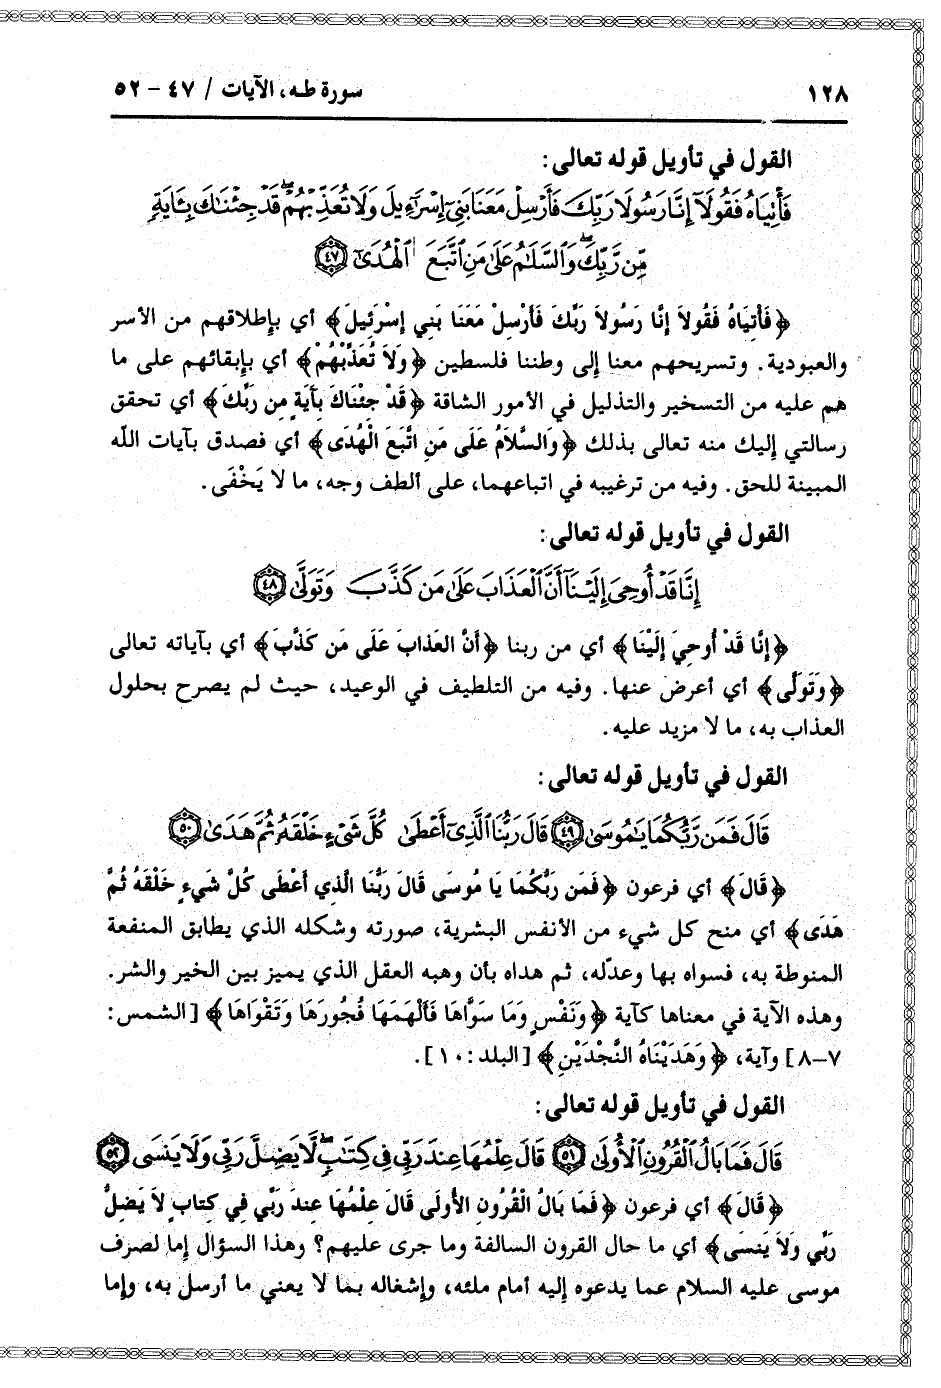 ١٢٨ سورة طه، الآيات / ٤٧ - ٥٢
القول في تأويل قوله تعالى:
فَأْتِيَاهُ فَقُولَآ إِنَّا رَسُولَا رَبِّكَ فَأَرْسِلْ مَعَنَا بَنِىٓ إِسْرَٰٓءِيلَ وَلَا تُعَذِّبْهُمْ ۖ قَدْ جِئْنَٰكَ بِـَٔايَةٍ
مِّن رَّبِّكَ ۖ وَٱلسَّلَٰمُ عَلَىٰ مَنِ ٱتَّبَعَ ٱلْهُدَىٰٓ ٤٧
﴿فَأْتِيَاهُ فَقُولاَ إِنَّا رَسُولاَ رَبِّكَ فَأَرْسِلْ مَعَنَا بَنِي إِسْرَئِيلَ﴾ أي بإطلاقهم من الأسر
والعبودية. وتسريحهم معنا إلى وطننا فلسطين ﴿وَلاَ تُعَذِّبْهُمْ﴾ أي بإبقائهم على ما
هم عليه من التسخير والتذليل في الأمور الشاقة ﴿قَدْ جِئْنَاكَ بآيَةٍ مِن رَبِّكَ﴾ أي تحقق
رسالتي إليك منه تعالى بذلك ﴿وَالسَّلاَمُ عَلَى مَنِ اتَّبَعَ الْهُدَى﴾ أي فصدق بآيات اللّه
المبينة للحق. وفيه من ترغيبه في اتباعهما، على ألطف وجه، ما لا يَخْفَى.
القول في تأويل قوله تعالى:
إِنَّا قَدْ أُوحِىَ إِلَيْنَآ أَنَّ ٱلْعَذَابَ عَلَىٰ مَن كَذَّبَ وَتَوَلَّىٰ ٤٨
﴿إِنَّا قَدْ أُوحِيَ إِلَيْنَا﴾ أي من ربنا ﴿أَنَّ العَذابَ عَلَى مَن كَذَّبَ﴾ أي بآياته تعالى
﴿وَتَوَلَّى﴾ أي أعرض عنها. وفيه من التلطيف في الوعيد، حيث لم يصرح بحلول
العذاب به، ما لا مزيد عليه.
القول في تأويل قوله تعالى:
قَالَ فَمَن رَّبُّكُمَا يَٰمُوسَىٰ ٤٩ قَالَ رَبُّنَا ٱلَّذِىٓ أَعْطَىٰ كُلَّ شَىْءٍ خَلْقَهُۥ ثُمَّ هَدَىٰ ٥٠
﴿قَالَ﴾ أي فرعون ﴿فَمَن رَبُّكُمَا يَا مُوسَى قَالَ رَبُّنَا الَّذِي أَعْطَى كُلَّ شَيءٍ خَلْقَهُ ثُمَّ
هَدَى﴾ أي منح كل شيء من الأنفس البشرية، صورته وشكله الذي يطابق المنفعة
المنوطة به، فسواه بها وعدّله، ثم هداه بأن وهبه العقل الذي يميز بين الخير والشر.
وهذه الآية في معناها كآية ﴿وَنَفْسٍ وَمَا سَوَّاهَا فَأَلْهَمَهَا فُجُورَهَا وَتَقْوَاهَا﴾ [الشمس:
٧-٨] وآية، ﴿وَهَدَيْنَاهُ النَّجْدَيْنِ﴾ [البلد: ١٠].
القول في تأويل قوله تعالى:
قَالَ فَمَا بَالُ ٱلْقُرُونِ ٱلْأُولَىٰ ٥١ قَالَ عِلْمُهَا عِندَ رَبِّى فِى كِتَٰبٍ ۖ لَّا يَضِلُّ رَبِّى وَلَا يَنسَى ٥٢
﴿قَالَ﴾ أي فرعون ﴿فَمَا بَالُ الْقُرُونِ الأُولَى قَالَ عِلْمُهَا عِندَ رَبِّي فِي كِتابٍ لاَ يَضِلُّ
رَبِّي ولاَ يَنسَى﴾ أي ما حال القرون السالفة وما جرى عليهم؟ وهذا السؤال إما لصرف
موسى عليه السلام عما يدعوه إليه أمام ملئه، وإشغاله بما لا يعني ما أرسل به، وإما